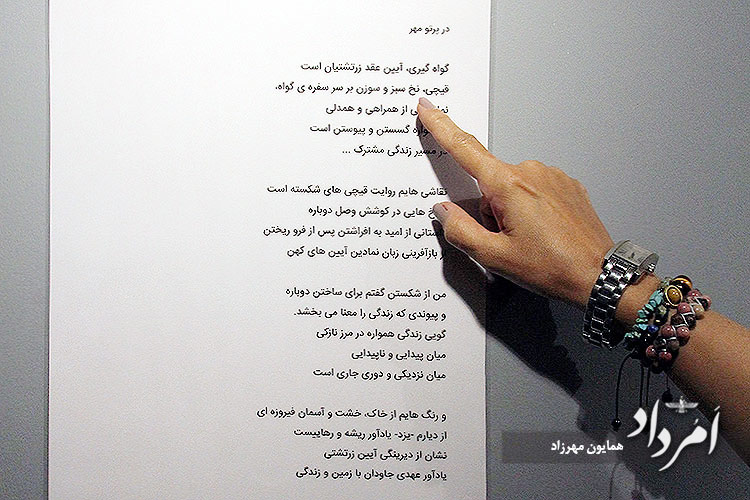 در پرتو مهر
گواه گیری، آیین عقد زرتشتیان است
قیچی، نخ سبز و سوزن بر سر سفره ی گواه،
از همراهی و همدلی
گسستن و پیوستن است
در مسیر زندگی مشترک ...
نقاشی هایم روایت قیچی های شکسته است
هایی در کوشش وصل دوباره
از امید به افراشتن پس از فرو ریختن
بازآفرینی زبان نمادین آیین های کهن
من از شکستن گفتم برای ساختن دوباره
و پیوندی که زندگی را معنا می بخشد.
گویی زندگی همواره در مرز نازکی
میان پیدایی و ناپیدایی
میان نزدیکی و دوری جاری است
و رنگ هایم از خاک، خشت و آسمان فیروزه ای
از دیارم -یزد- یادآور ریشه و رهاییست
نشان از دیرینگی آیین زرتشتی
یادآور عهدی جاودان با زمین و زندگی
اَمُرداد
همایون مهرزاد